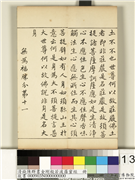 土不不也世尊何以故莊嚴佛土
者即非莊嚴是名莊嚴是故須菩
提諸菩薩摩訶薩應如是生清淨
心不應住色生心不應住聲香味
觸法生心應無所住而生其心須
菩提譬如有人身如須彌山王於
意云何是身為大不須菩提言甚
大世尊何以故佛說非身是名大
身
無為福勝分第十一
金剛般若波羅蜜經
13